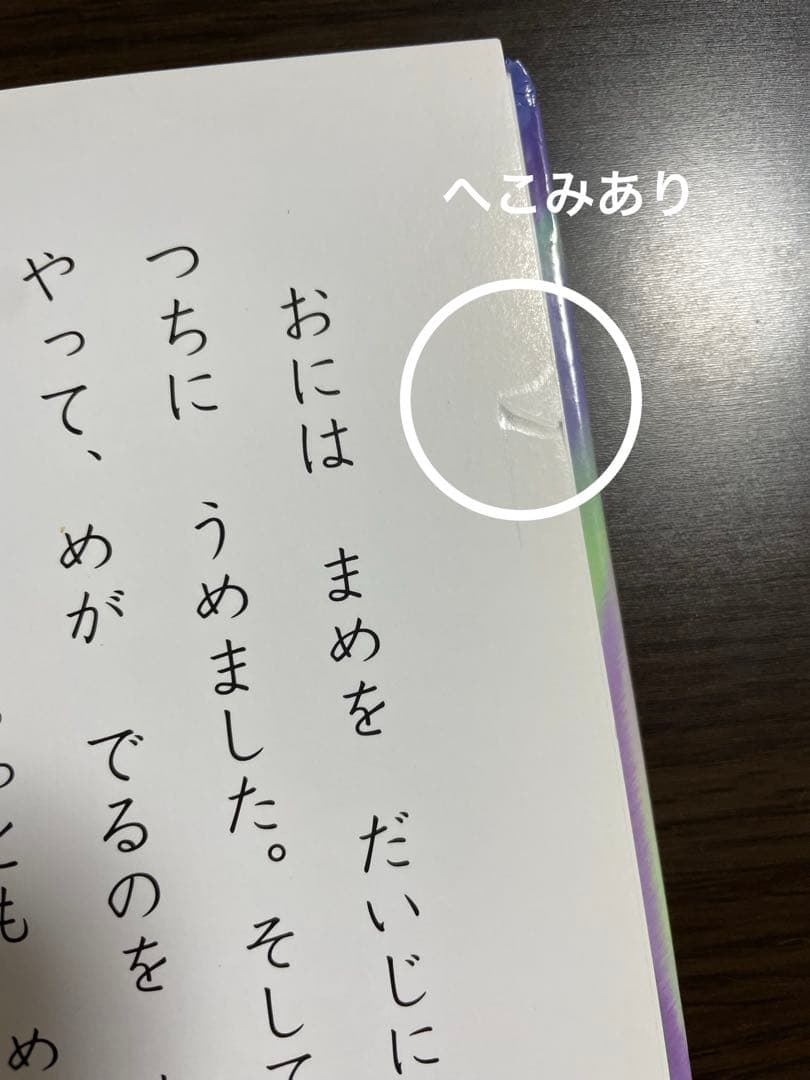 へこみあり
おには　まめを　だいじに
つちに　うめました。そして
やって、めが　でるのを